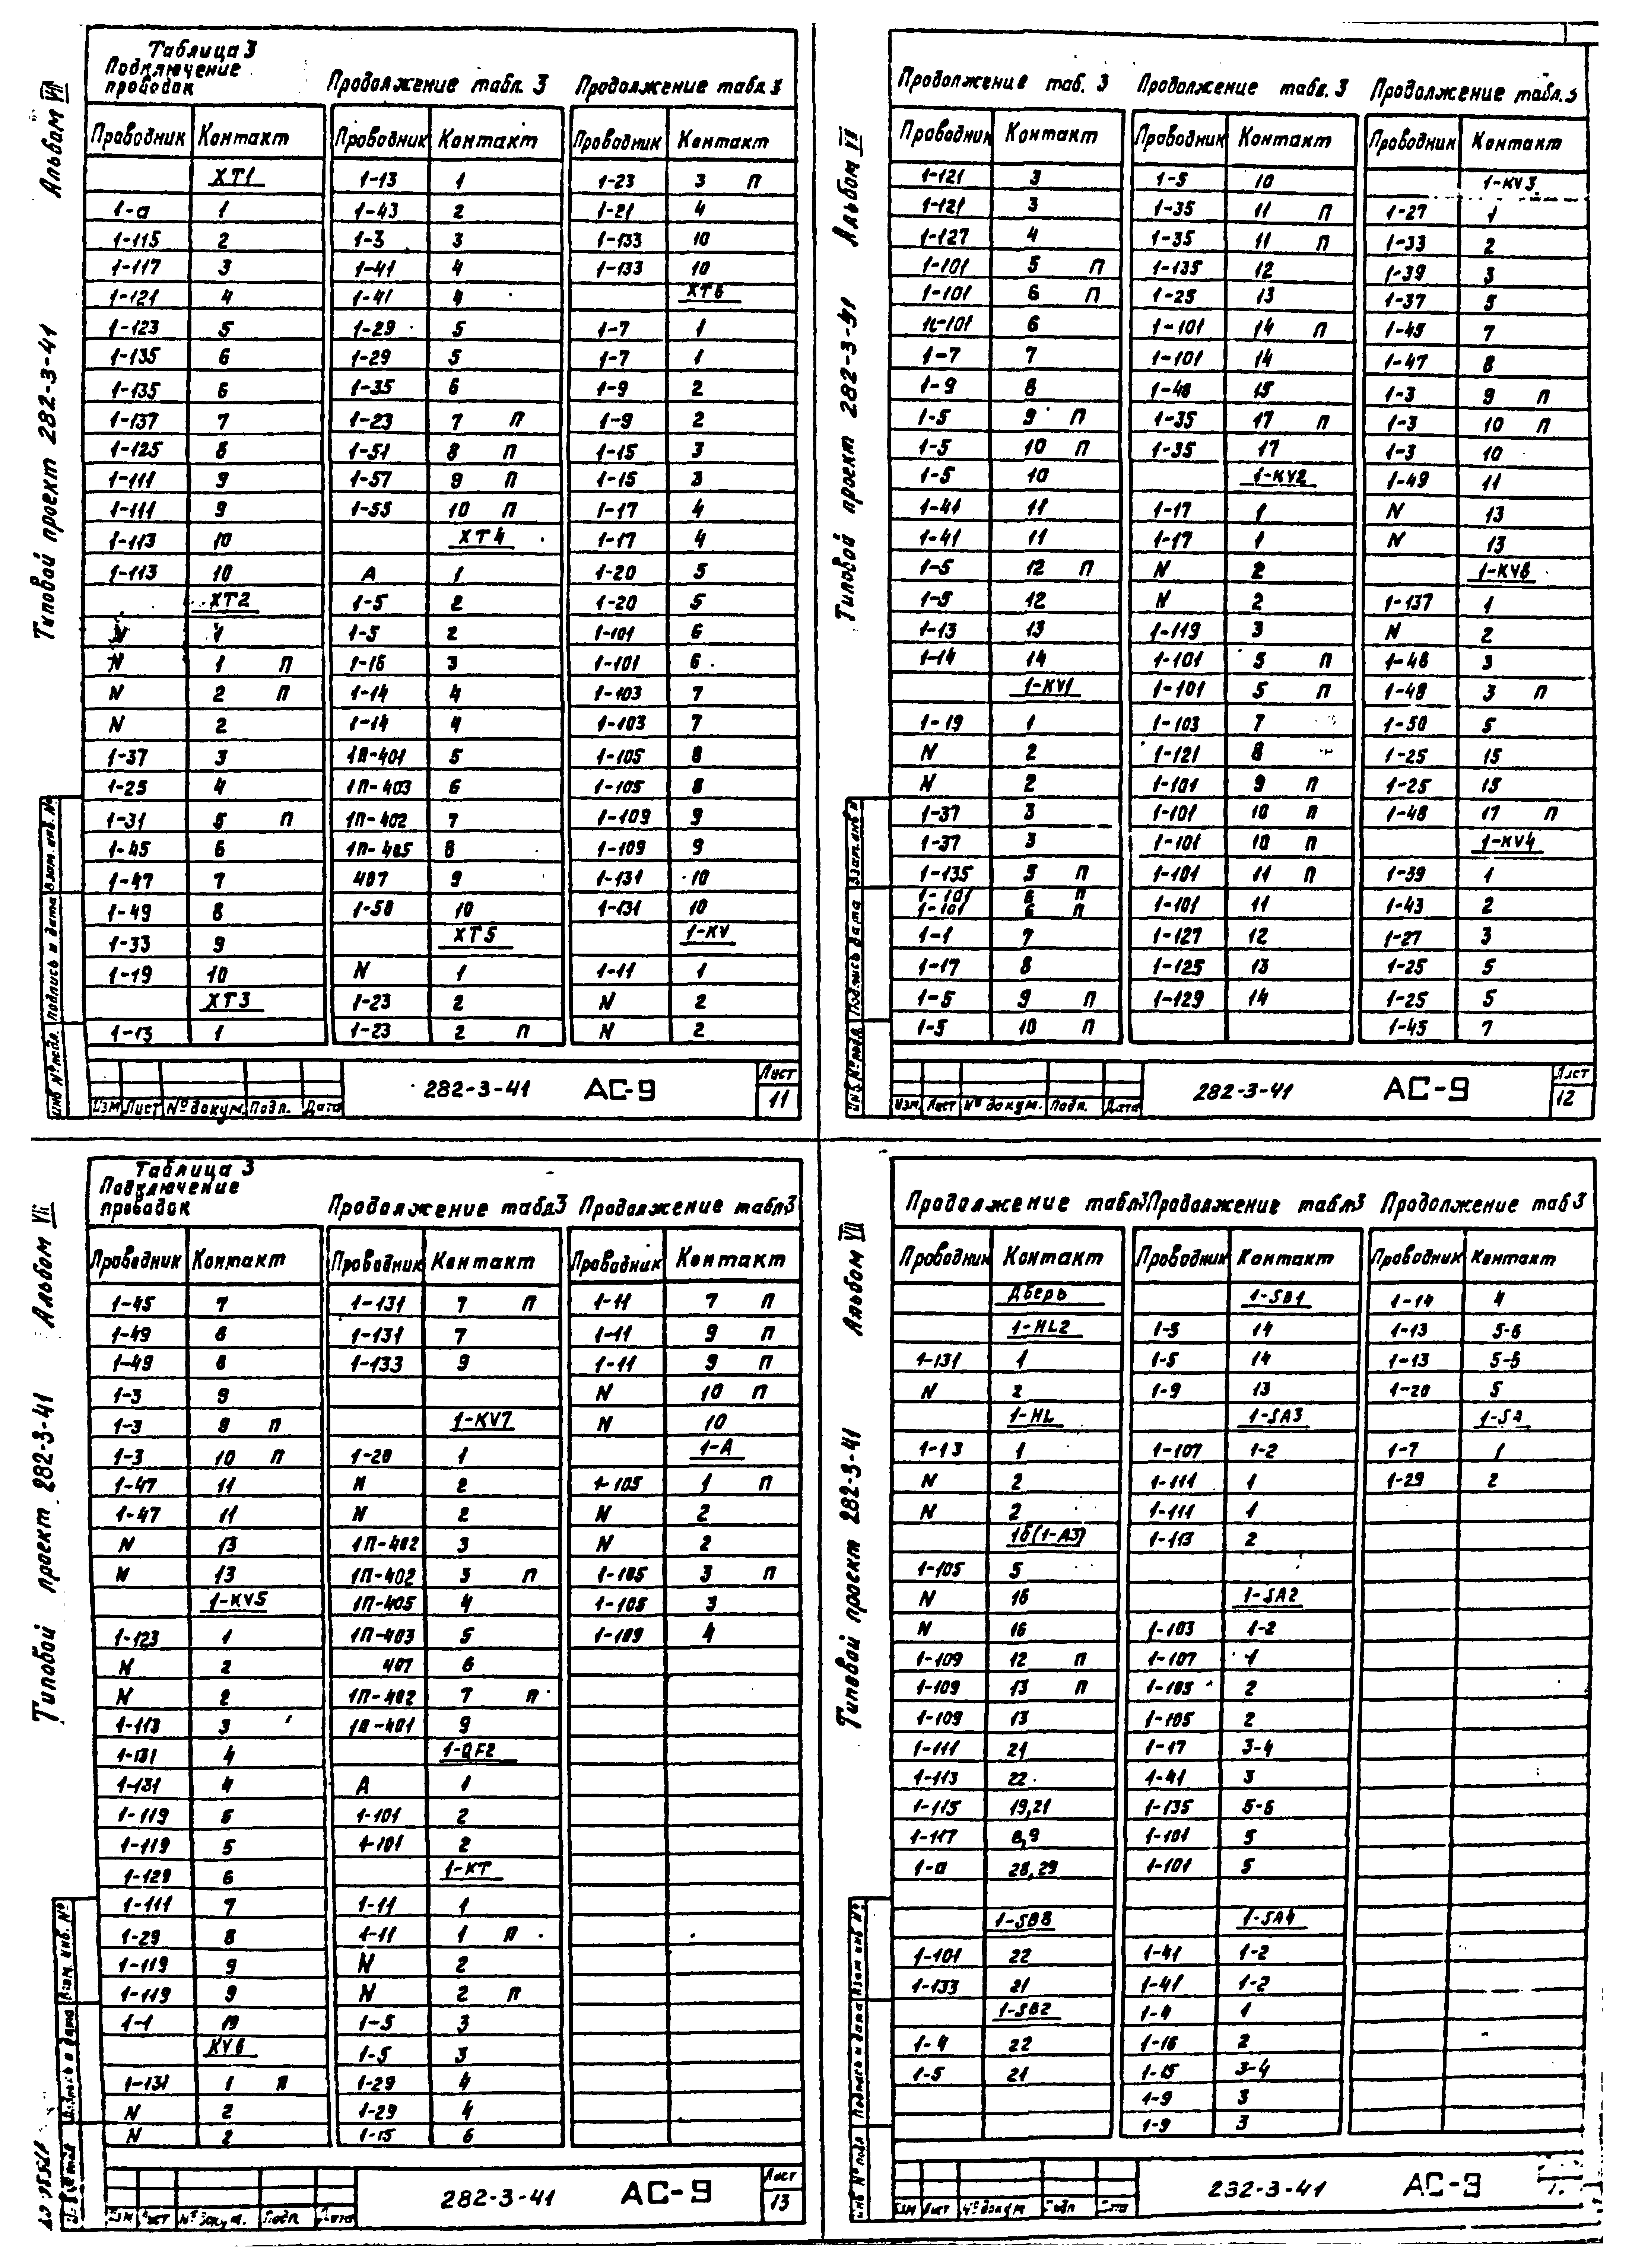 Альбом VII
Типовой проект 282-3-41
Таблица 3
Подключение
проводок
Проводник Контакт
XT1
1-а 1
1-115 2
1-117 3
1-121 4
1-123 5
1-135 6
1-135 6
1-137 7
1-125 8
1-111 9
1-111 9
1-113 10
1-113 10
XT2
N 1
N 1 П
N 2 П
N 2
1-37 3
1-25 4
1-31 5 П
1-45 6
1-47 7
1-49 8
1-33 9
1-19 10
XT3
1-13 1
Продолжение табл. 3
Проводник Контакт
1-13 1
1-43 2
1-3 3
1-41 4
1-41 4
1-29 5
1-29 5
1-35 6
1-23 7 П
1-51 8 П
1-57 9 П
1-55 10 П
XT4
А 1
1-5 2
1-5 2
1-16 3
1-14 4
1-14 4
1П-401 5
1П-403 6
1П-402 7
1П-405 8
407 9
1-50 10
XT5
N 1
1-23 2
1-23 2 П
Продолжение табл 3
Проводник Контакт
1-23 3 П
1-21 4
1-133 10
1-133 10
XT6
1-7 1
1-7 1
1-9 2
1-9 2
1-15 3
1-15 3
1-17 4
1-17 4
1-20 5
1-20 5
1-101 6
1-101 6
1-103 7
1-103 7
1-105 8
1-105 8
1-109 9
1-109 9
1-131 10
1-131 10
1-KV
1-11 1
N 2
N 2
Взам. инв. №
Подпись и дата
Инв № подл.
Изм Лист № докум. Подп. Дата
282-3-41 АС-9
Лист
11
Альбом VII
Типовой проект 282-3-41
Продолжение таб. 3
Проводник Контакт
1-121 3
1-121 3
1-127 4
1-101 5 П
1-101 6 П
1-101 6
1-7 7
1-9 8
1-5 9 П
1-5 10 П
1-5 10
1-41 11
1-41 11
1-5 12 П
1-5 12
1-13 13
1-14 14
1-KV1
1-19 1
N 2
N 2
1-37 3
1-37 3
1-135 5 П
1-101 6 П
1-101 6 П
1-1 7
1-17 8
1-5 9 П
1-5 10 П
Продолжение табл. 3
Проводник Контакт
1-5 10
1-35 11 П
1-35 11 П
1-135 12
1-25 13
1-101 14 П
1-101 14
1-48 15
1-35 17 П
1-35 17
1-KV2
1-17 1
1-17 1
N 2
N 2
1-119 3
1-101 5 П
1-101 5 П
1-103 7
1-121 8
1-101 9 П
1-101 10 П
1-101 10 П
1-101 11 П
1-101 11
1-127 12
1-125 13
1-129 14
Продолжение табл. 3
Проводник Контакт
1-KV3
1-27 1
1-33 2
1-39 3
1-37 5
1-45 7
1-47 8
1-3 9 П
1-3 10 П
1-3 10
1-49 11
N 13
N 13
1-KV8
1-137 1
N 2
1-48 3
1-48 3 П
1-50 5
1-25 15
1-25 15
1-48 17 П
1-KV4
1-39 1
1-43 2
1-27 3
1-25 5
1-25 5
1-45 7
Взам. инв №
Подпись дата
Инв № подл.
Изм. Лист № докум. Подп. Дата
282-3-41 АС-9
Лист
12
Альбом VII
Типовой проект 282-3-41
Таблица 3
Подключение
проводок
Проводник Контакт
1-45 7
1-49 8
1-49 8
1-3 9
1-3 9 П
1-3 10 П
1-47 11
1-47 11
N 13
N 13
1-KV5
1-123 1
N 2
N 2
1-113 3
1-131 4
1-131 4
1-119 5
1-119 5
1-129 6
1-111 7
1-29 8
1-119 9
1-119 9
1-1 10
KV6
1-131 1 П
N 2
N 2
Продолжение табл3
Проводник Контакт
1-131 7 П
1-131 7
1-133 9
1-KV7
1-20 1
N 2
N 2
1П-402 3
1П-402 3 П
1П-405 4
1П-403 5
407 6
1П-402 7 П
1П-401 9
1-QF2
А 1
1-101 2
1-101 2
1-КТ
1-11 1
1-11 1 П
N 2
N 2 П
1-5 3
1-5 3
1-29 4
1-29 4
1-15 6
Продолжение табл3
Проводник Контакт
1-11 7 П
1-11 9 П
1-11 9 П
N 10 П
N 10
1-А
1-105 1 П
N 2
N 2
1-105 3 П
1-105 3
1-109 4
Взам. инв. №
Подпись и дата
Изм Лист № докум. Подп Дата
282-3-41 АС-9
Лист
13
Альбом VII
Типовой проект 282-3-41
Продолжение табл3
Проводник Контакт
Дверь
1-HL2
1-131 1
N 2
1-HL
1-13 1
N 2
N 2
1б(1-А3)
1-105 5
N 16
N 16
1-109 12 П
1-109 13 П
1-109 13
1-111 21
1-113 22
1-115 19,21
1-117 8,9
1-а 28,29
1-SB8
1-101 22
1-133 21
1-SB2
1-4 22
1-5 21
Продолжение табл3
Проводник Контакт
1-SB1
1-5 14
1-5 14
1-9 13
1-SA3
1-107 1-2
1-111 1
1-111 1
1-113 2
1-SA2
1-103 1-2
1-107 1
1-103 2
1-105 2
1-17 3-4
1-41 3
1-135 5-6
1-101 5
1-101 5
1-SA4
1-41 1-2
1-41 1-2
1-4 1
1-16 2
1-15 3-4
1-9 3
1-9 3
Продолжение таб 3
Проводник Контакт
1-14 4
1-13 5-6
1-13 5-6
1-20 5
1-SA
1-7 1
1-29 2
Взам инв №
Подпись и дата
Инв № подл
Изм Лист № докум Подп Дата
232-3-41 АС-9